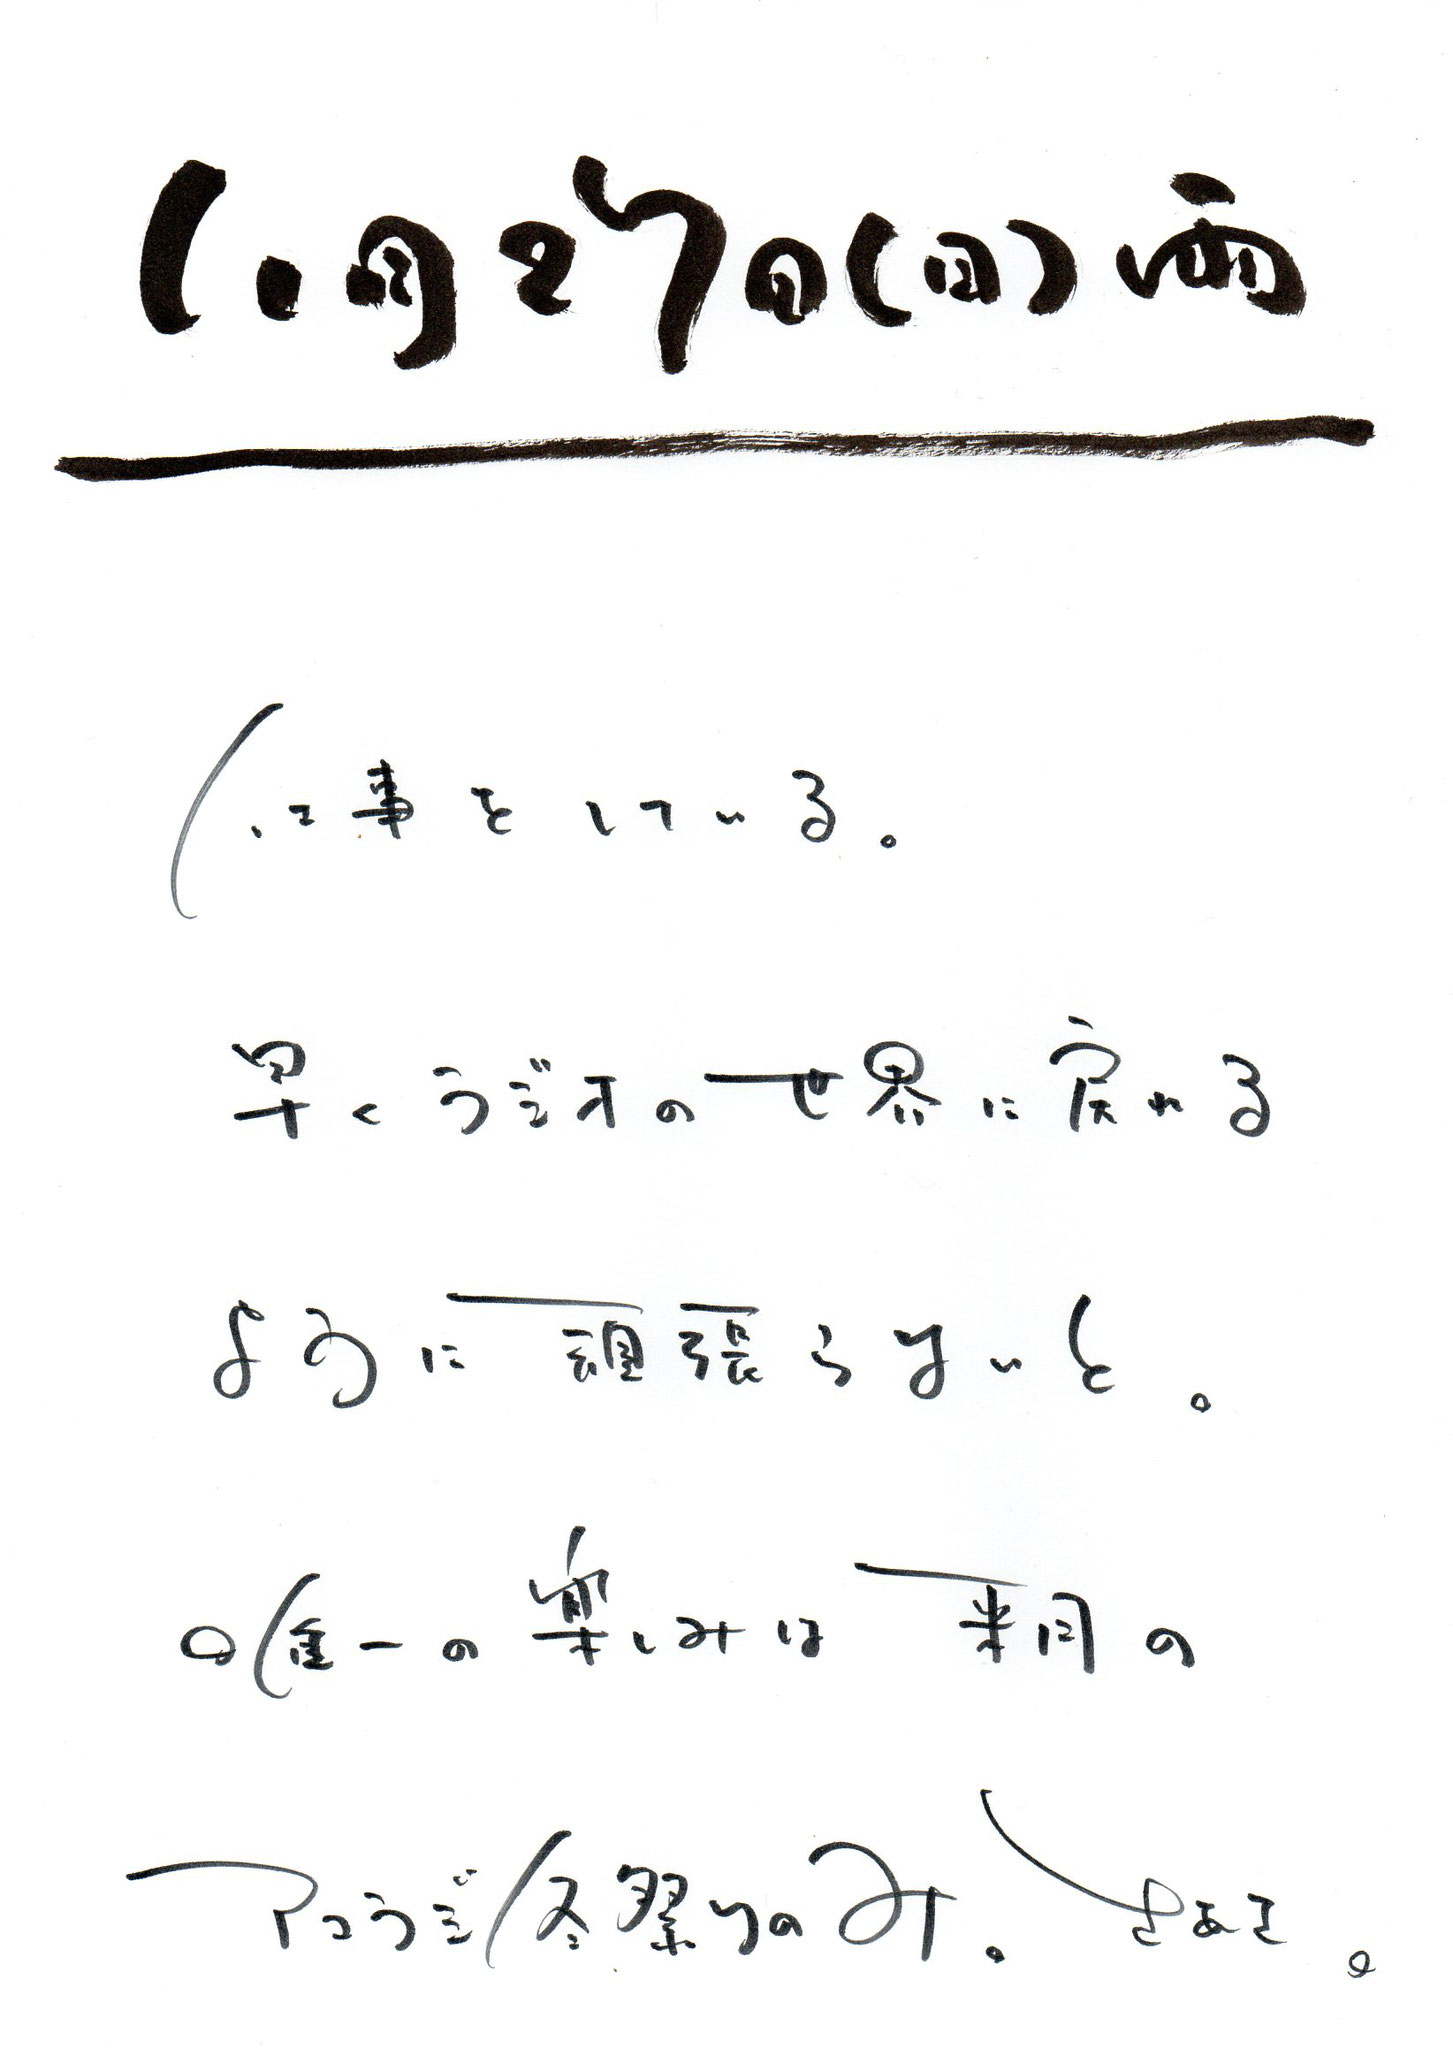 10月27日(日)雨
仕事をしている。
早くラジオの世界に戻れる
ように頑張らないと。
唯一の楽しみは来月の
アコラジ冬祭りのみ。さあさ。